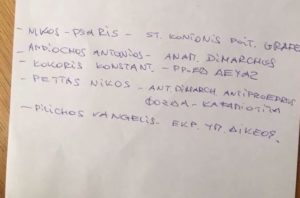 - NIKOS - PSARIS - ST. KONIONIS POLIT. GRAFE
- ANDIOCHOS ANTONIOS - ANAΠ. DIMARCHOS
- KOKORIS KONSTANT. - PP-ED ΔΕΥΑΖ
- PETTAS NIKOS - ANT. DIMARCH. ANTIPROEDROS
ΦΟΖΔΑ - ΚΑΡΔΙΟΤΙΤΑ
- PILICHOS VANGELIS - EKP. YΠ. ΔΙΚΕΟΣ.